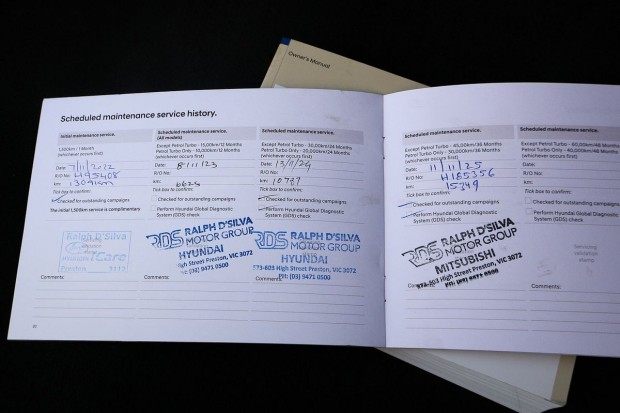 Owner's Manual
Scheduled maintenance service history.
Initial maintenance service.
1,500km / 1 Month
(whichever occurs first)
Date: 7/11/2022
R/O No: H195408
km: 1309km
Tick box to confirm:
Checked for outstanding campaigns
The initial 1,500km service is complimentary
Ralph D'Silva
Hyundai iCare
Preston 3111
Comments:
Scheduled maintenance service.
(All models)
Except Petrol Turbo - 15,000km/12 Months
Petrol Turbo Only - 10,000km/12 Months
(whichever occurs first)
Date: 8/11/23
R/O No:
km: 6625
Tick box to confirm:
Checked for outstanding campaigns
Perform Hyundai Global Diagnostic
System (GDS) check
RDS RALPH D'SILVA
MOTOR GROUP
HYUNDAI
High Street Preston, VIC 3072
PH: (03) 9471 0500
Comments:
Scheduled maintenance service.
Except Petrol Turbo - 30,000km/24 Months
Petrol Turbo Only - 20,000km/24 Months
(whichever occurs first)
Date: 13/11/24
R/O No:
km: 10727
Tick box to confirm:
Checked for outstanding campaigns
Perform Hyundai Global Diagnostic
System (GDS) check
RDS RALPH D'SILVA
MOTOR GROUP
HYUNDAI
573-603 High Street Preston, VIC 3072
PH: (03) 9471 0500
Comments:
Scheduled maintenance service.
Except Petrol Turbo - 45,000km/36 Months
Petrol Turbo Only - 30,000km/36 Months
(whichever occurs first)
Date: 11/11/25
R/O No: H185356
km: 15249
Tick box to confirm:
Checked for outstanding campaigns
Perform Hyundai Global Diagnostic
System (GDS) check
RDS RALPH D'SILVA
MOTOR GROUP
MITSUBISHI
573-603 High Street Preston, VIC 3072
PH: (03) 9471 0500
Comments:
Scheduled maintenance service.
Except Petrol Turbo - 60,000km/48 Months
Petrol Turbo Only - 40,000km/48 Months
(whichever occurs first)
Date:
R/O No:
km:
Tick box to confirm:
Checked for outstanding campaigns
Perform Hyundai Global Diagnostic
System (GDS) check
Servicing
validation
stamp
Comments: